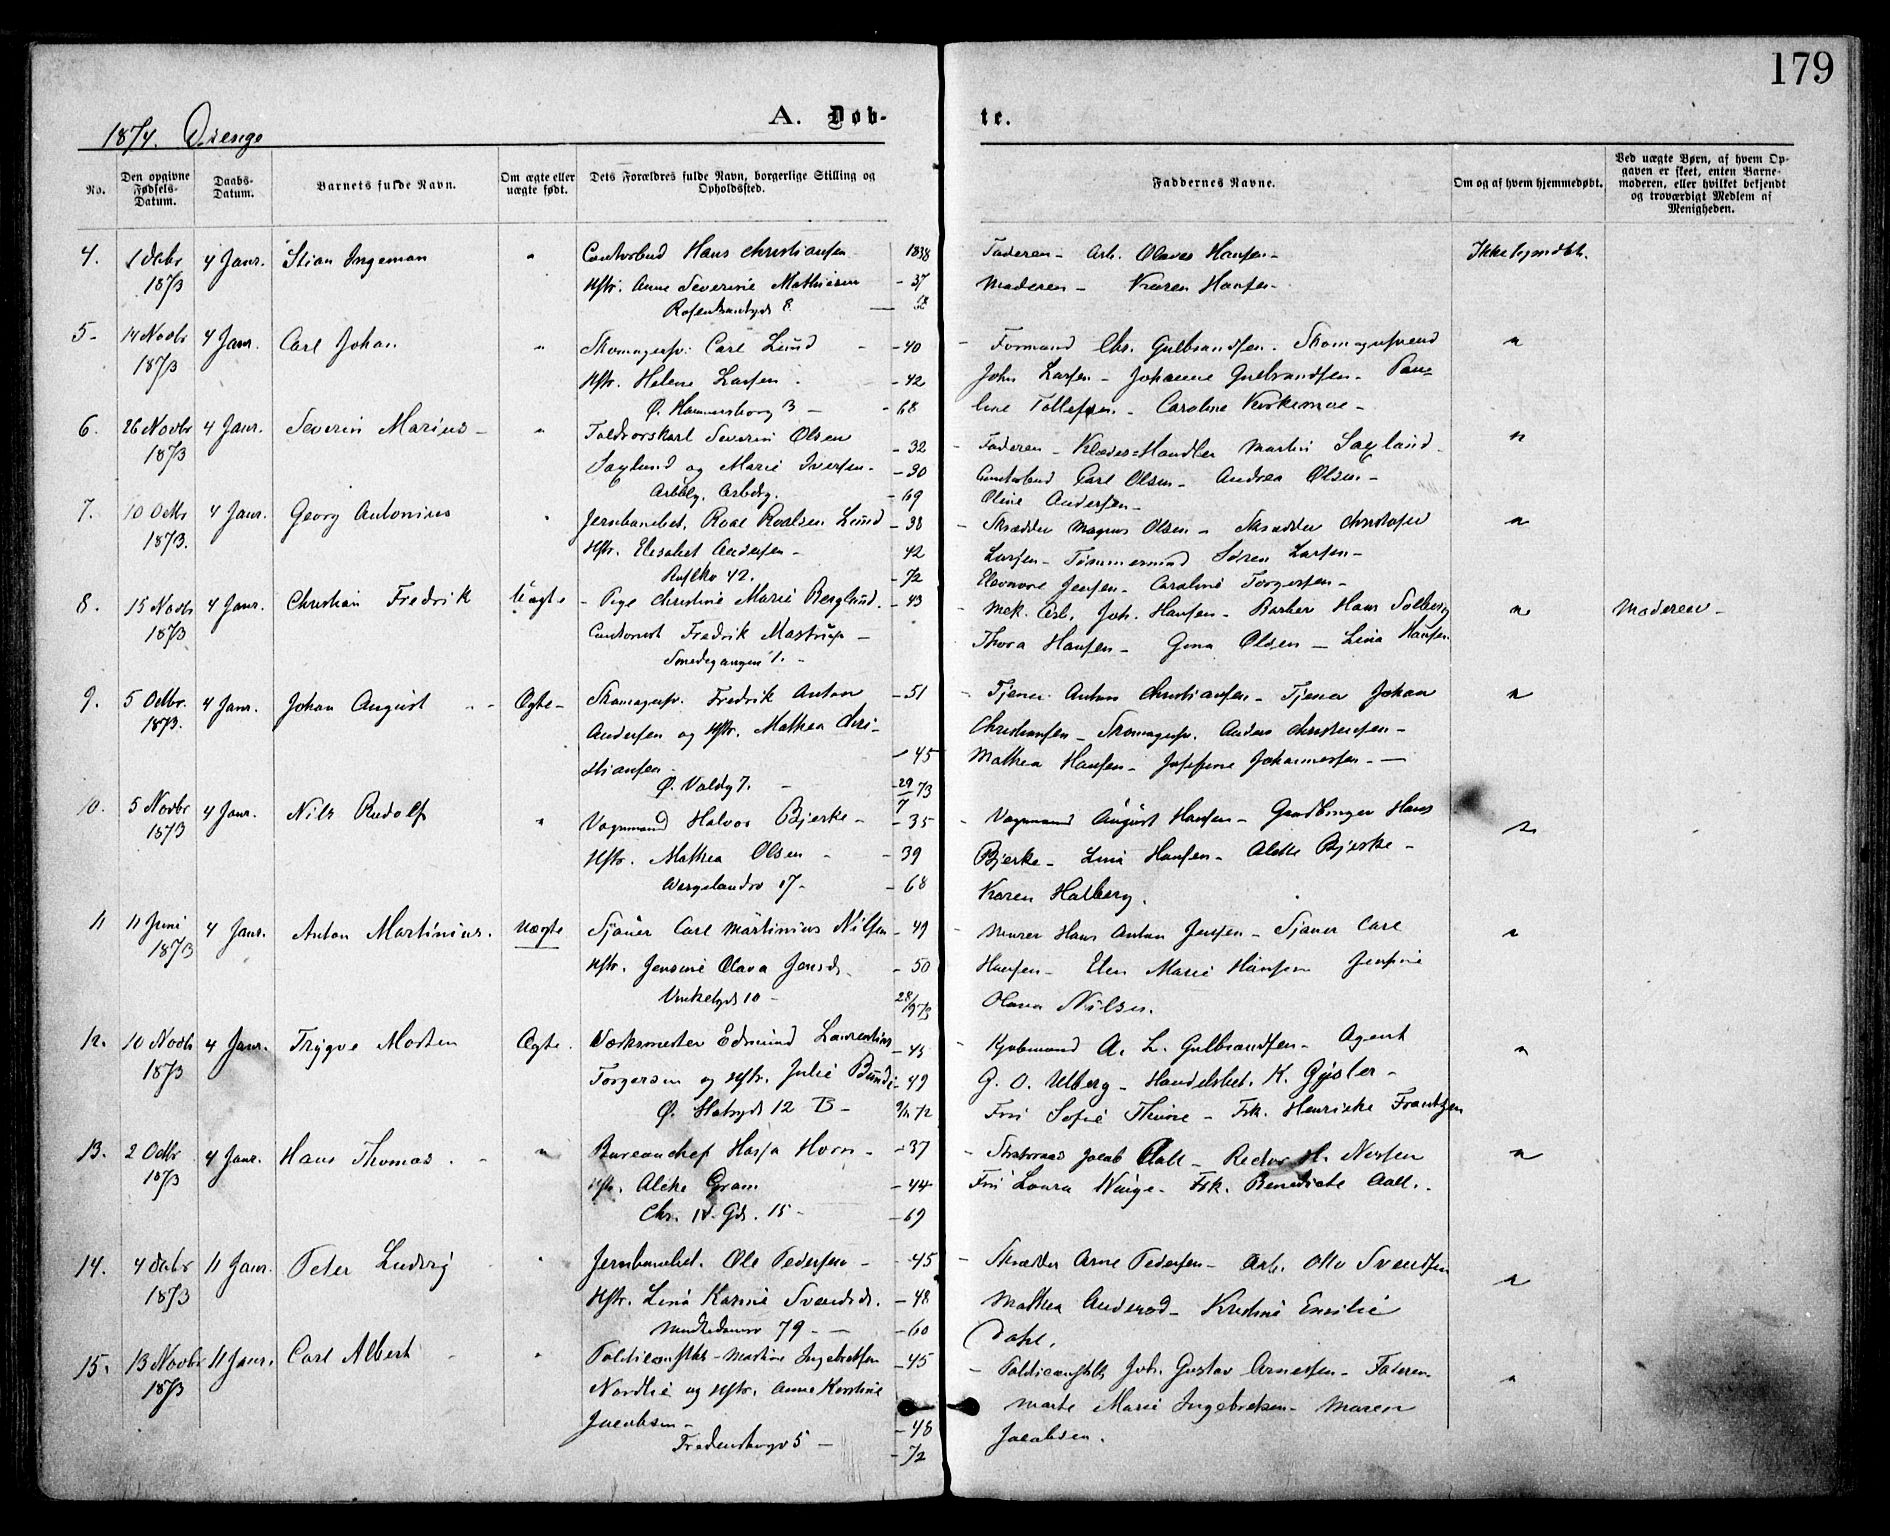 179
1874. Drenge
A. Døb-
te.
No.
Den opgivne Fødsels-Datum.
Daabs-Datum.
Barnets fulde Navn.
Om ægte eller uægte født.
Dets Forældres fulde Navn, borgerlige Stilling og Opholdssted.
Faddernes Navne.
Om og af hvem hjemmedøbt.
Ved uægte Børn, af hvem Opgaven er skeet, enten Barnemoderen, eller hvilket bekjendt og troværdigt Medlem af Menigheden.
4. 1 Decbr 4 Janr. Stian Ingeman " Contorbud Hans Christiansen 1838 Faderen - Arb. Olaves Hansen -
1873 Hstr. Anne Severine Mathiesen - 37 Moderen - Karen Hansen -
8
5 - 14 Novbr 4 Janr. Carl Johan " Skomagersv. Carl Lund - 40 - Formand Chr. Gulbrandsen. Skomagersvend "
1873 Hstr. Helene Larsen - 42 John Larsen - Johanne Gulbrandsen - Pau=
Ø. Hammersborg 3 - 68 line Tollefsen - Caroline
6. 26 Novbr 4 Janr. Severin Marius - " Toldvorskarl Severin Olsen - 32 - Faderen - Klædes=Handler Martin Saxlund "
1873 Saxlund og Marie Iversen - 30 Contorbud Carl Olsen - Andrea Olsen -
- 69 Oline Andersen -
7. 10 Octbr 4 Janr. Georg Antonius " Jernbanebet. Roal Roalsen Lund - 38 - Skrædder Magnus Olsen - Skrædder Christofer "
1873. Hstr. Elisabet Andersen - 42 Larsen - Tømmermand Søren Larsen -
42. - 72 Eleonore Jensen - Caroline Torgersen -
8. 15 Novbr 4 Janr. Christian Fredrik Uægte - Pige Christine Marie Berglund. - 43 - Mek. Arb. Joh. Hansen - Barber Hans Solberg " Moderen -
1873 Contorist Fredrik Mastrup - Thora Hansen - Gina Olsen - Lina Hansen
Smedegangen 1. -
9. 5 Octbr. 4 Janr. Johan August Ægte - Skomagersv. Fredrik Anton - 51 - Tjener Anton Christiansen - Tjener Johan "
1873. Andersen og Hstr. Mathea Chri - Christiansen - Skomagersv. Anders Christensen -
stiansen - 45 Mathea Hansen - Josefine Johannessen -
Ø. Voldg 7. - 29/7 73
10. 5 Novbr 4 Janr. Nils Rudolf " Vognmand Halvor Bjerke - - 35 - Vognmand August Hansen - Hans "
1873 Hstr. Mathea Olsen - 39 Bjerke - Lina Hansen - Alette Bjerke -
Wergelandsv 17 - - 68 Karen Halberg.
11 11 Juni 4 Janr. Anton Martinius. Uægte Sjauer Carl Martinius Nilsen - 49 - Murer Hans Anton Jensen - Sjauer Carl "
1873 Hstr. Jensine Olava Jensd. - 50 Hansen - Elen Marie Hansen Jensine
10 - 28/9 73 Olava Nilsen.
12. 10 Novbr 4 Janr. Trygve Morten Ægte. Værksmester Edmund Laurentius - 43 - Kjøbmand A. L. Gulbrandsen - Agent "
1873 Torgersen og Hstr. Julie Bundi - 49 G. O. Ulberg - Handelsbet. K. Gjisler -
12 B - 72 Fru Sofie Thune - Frk. Henrikke Frantzen
13. 2 Octbr 4 Janr. Hans Thomas. " Bureauchef Horn - - 37 - Statsraad Jacob Aall - Rector H. Nissen "
1873 Hstr. Alette Gram - 44 Fru Laura Winge - Frk. Benedicte Aall.
Chr. IV. Gd. 15 - - 69
14. 4 Decbr 11 Janr. Peter Ludvig " Jernbanebet. Ole Pedersen - - 45 - Skrædder Arne Pedersen - Arb. Otto Svendsen "
1873 Hstr. Lina Karine Svendsd. - 48 Mathea Anderød - Kristine Emilie
79 - - 60 Dahl.
15. 13 Novbr 11 Janr. Carl Albert " Politiconstbl. Martin Ingebretsen - 45 - Politiconstbl Joh. Gustav Arnesen - Faderen "
1873 Nordlie og Hstr. Anne Kirstine Marte Marie Ingebretsen - Maren
Jacobsen - - 48 Jacobsen.
Fredensborgv 5 - - 72